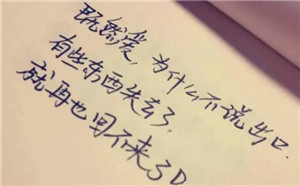 既然爱,为什么不说出口.
有些东西失去了.
就再也回不来了D